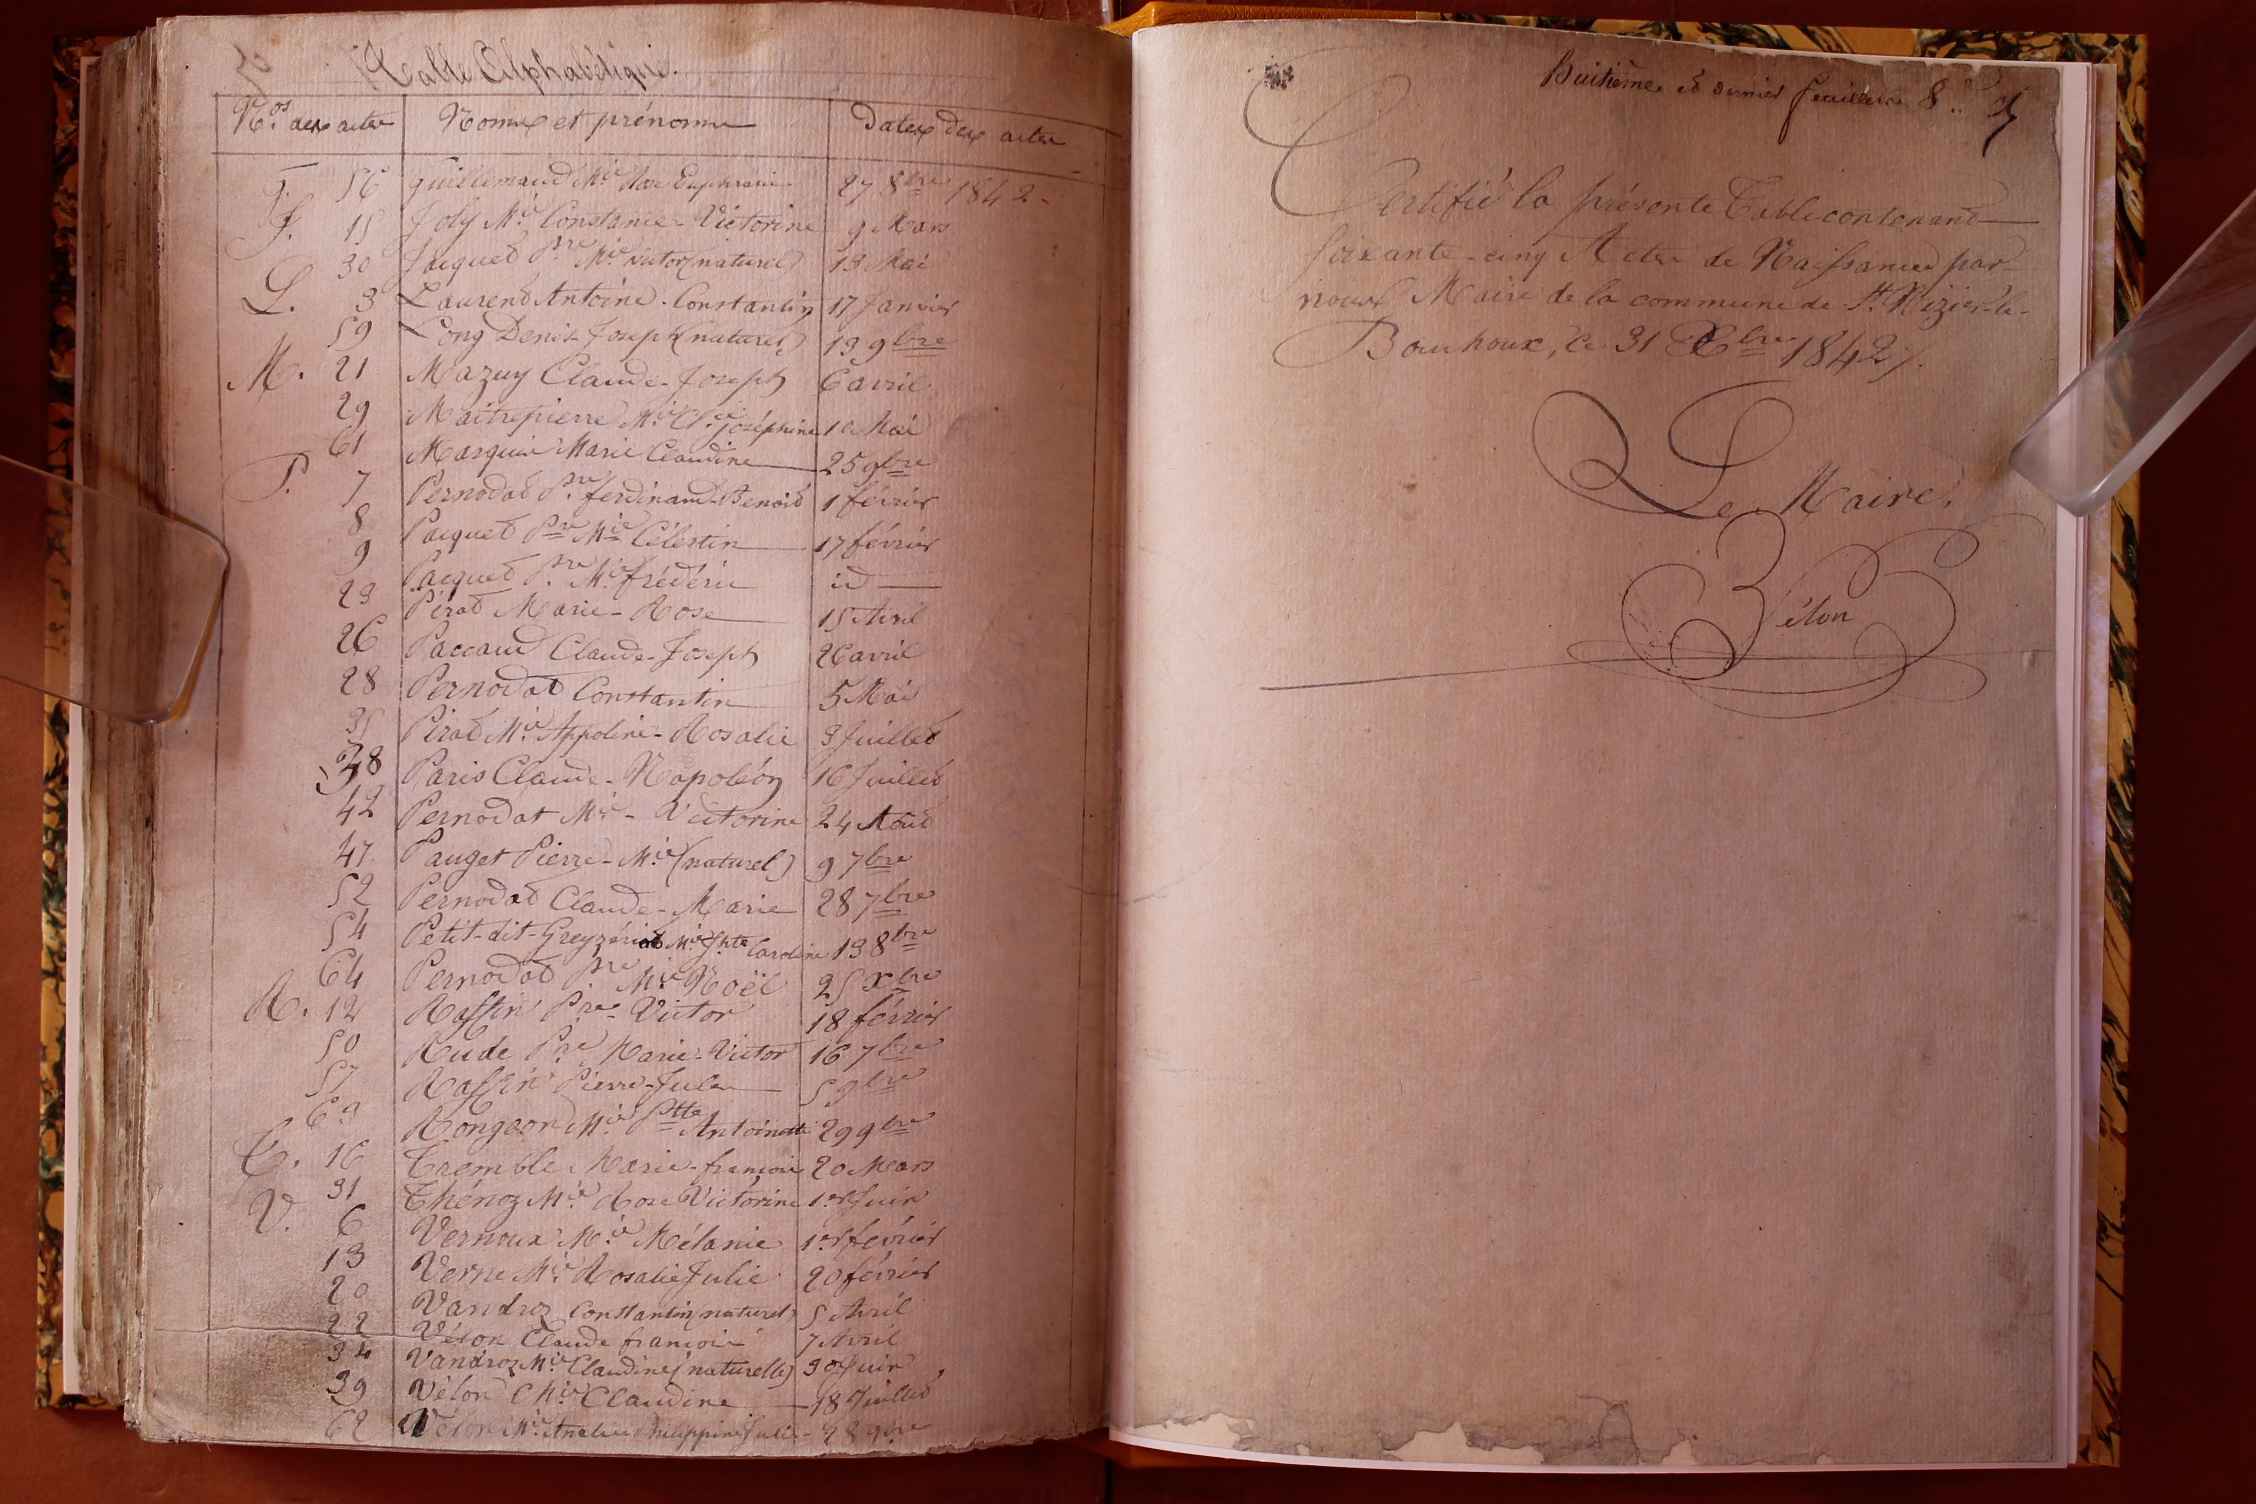 Table Alphabétique.
Nos des actes Noms et prénoms Dates des actes
G. 56 Guillemaud Mie Rose Euphrasie 27 8bre 1842.
J. 15 Joly Mie Constance-Victorine 9 Mars
30 Jacquet Pre Mie Victor (naturel) 13 Mai
L. 3 Laurent Antoine-Constantin 17 Janvier
59 Long Denis-Joseph (naturel) 13 9bre
M. 21 Mazuy Claude-Joseph 6 avril
29 Maitrepierre Mie Joséphine 10 Mai
61 Marquis Marie Claudine 25 9bre
P. 7 Pernodat Pre ferdinand-Benoit 1 février
8 Pacquet Pre Mie Célestin 17 février
9 Pacquet Pre Mie frédéric id
23 Pirat Marie-Rose 15 Avril
26 Paccaud Claude-Joseph 26 avril
28 Pernodat Constantin 5 Mai
35 Pirat Mie Appoline-Rosalie 3 Juillet
38 Paris Claude-Napoléon 16 Juillet
42 Pernodat Mie-Victorine 24 Aout
47 Pauget Pierre-Mie (naturel) 9 7bre
52 Pernodat Claude-Marie 28 7bre
54 Petit-dit-Greyzériat Mie Jhte Caroline 13 8bre
64 Pernodat Pre Mie Noël 25 Xbre
R. 12 Raffin Pre Victor 18 février
50 Rude Pre Marie-Victor 16 7bre
57 Raffin Pierre-Jules 5 9bre
63 Rongeon Mie Ptte Antoinette 29 9bre
T. 16 Tremble Marie-françoise 20 Mars
31 Thénoz Mie Rose Victorine 1er Juin
V. 6 Vernoux Mie Mélanie 1er février
13 Verne Mie Rosalie Julie 20 février
20 Vandroz Constantin (naturel) 5 Avril
22 Vélon Claude françois 7 Avril
34 Vandroz Mie Claudine (naturelle) 30 Juin
39 Vélon Mie Claudine 18 Juillet
62 Vélon Mie Philippine Julie 28 9bre
Huitième et dernier feuillet 8
Certifié la présente Table contenant
soixante-cinq Actes de Naissances par
nous Maire de la commune de St Nizier-le-
Bouchoux, le 31 Xbre 1842.
Le Maire,
Vélon